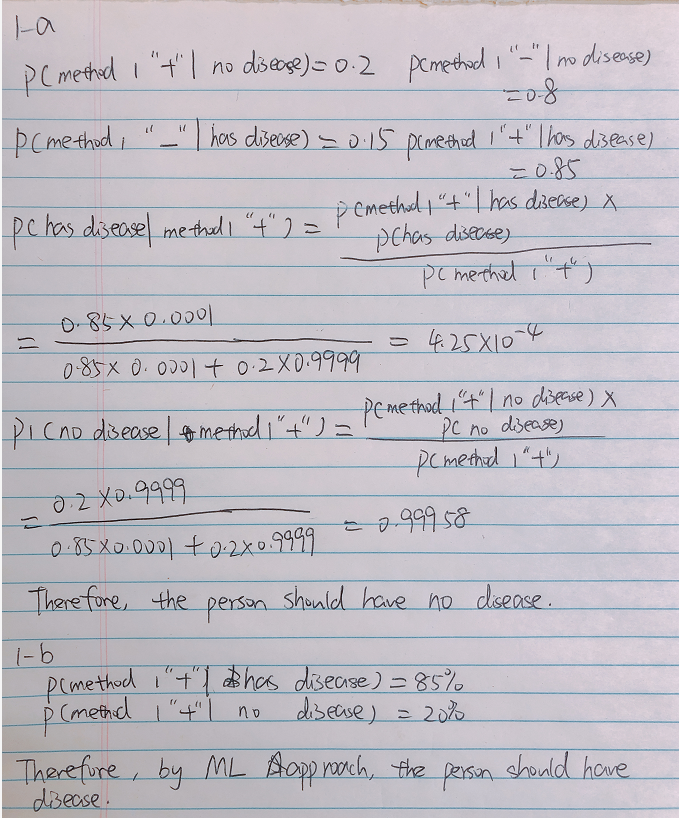 1-a
P(method 1 "+" | no disease) = 0.2 P(method 1 "-" | no disease)
= 0.8
P(method 1 "-" | has disease) = 0.15 P(method 1 "+" | has disease)
= 0.85
P(has disease | method 1 "+") = P(method 1 "+" | has disease) ×
P(has disease)
P(method 1 "+")
= 0.85 × 0.0001 / 0.85 × 0.0001 + 0.2 × 0.9999 = 4.25×10⁻⁴
P1(no disease | method 1 "+") = P(method 1 "+" | no disease) ×
P(no disease)
P(method 1 "+")
= 0.2 × 0.9999 / 0.85×0.0001 + 0.2×0.9999 = 0.99958
Therefore, the person should have no disease.
1-b
P(method 1 "+" | has disease) = 85%
P(method 1 "+" | no disease) = 20%
Therefore, by ML Approach, the person should have
disease.